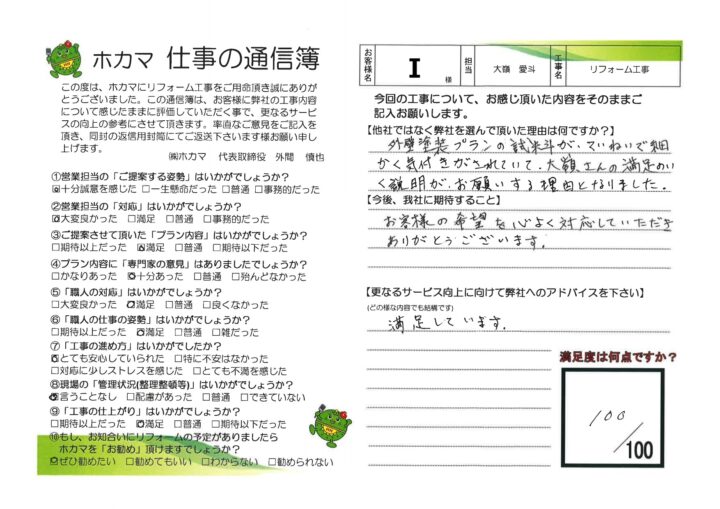 ホカマ 仕事の通信簿
この度は、ホカマにリフォーム工事をご用命頂き誠にありが
とうございました。この通信簿は、お客様に弊社の工事内容
について感じたままに評価していただく事で、更なるサービ
スの向上の参考にさせて頂きます。率直なご意見をご記入を
頂き、同封の返信用封筒にてご返送下さいます様お願い申し
上げます。
㈱ホカマ 代表取締役 外間 慎也
①営業担当の「ご提案する姿勢」はいかがでしょうか?
☑十分誠意を感じた □一生懸命だった □普通 □事務的だった
②営業担当の「対応」はいかがでしょうか?
☑大変良かった □満足 □普通 □事務的だった
③ご提案させて頂いた「プラン内容」はいかがでしょうか?
□期待以上だった ☑満足 □普通 □期待以下だった
④プラン内容に「専門家の意見」はありましたでしょうか?
□かなりあった ☑十分あった □普通 □殆んどなかった
⑤「職人の対応」はいかがでしょうか?
□大変良かった ☑満足 □普通 □良くなかった
⑥「職人の仕事の姿勢」はいかがでしょうか?
□期待以上だった ☑満足 □普通 □雑だった
⑦「工事の進め方」はいかがでしたか?
☑とても安心していられた □特に不安はなかった
□対応に少しストレスを感じた □とても不満を感じた
⑧現場の「管理状況(整理整頓等)」はいかがでしょうか?
☑言うことなし □配慮があった □普通 □できていない
⑨「工事の仕上がり」はいかがでしょうか?
□期待以上だった ☑満足 □普通 □期待以下だった
⑩もし、お知合いにリフォームの予定がありましたら
ホカマを「お勧め」頂けますでしょうか?
☑ぜひ勧めたい □勧めてもいい □わからない □勧められない
お客様名 I 様 担当 大嶺 愛斗 工事名 リフォーム工事
今回の工事について、お感じ頂いた内容をそのままご
記入お願いします。
【他社ではなく弊社を選んで頂いた理由は何ですか?】
外壁塗装プランの試米斗が、ていねいで細
かく気付きがされていて、大嶺さんの満足のい
く説明が、お願いする理由となりました。
【今後、我社に期待すること】
お客様の希望を心よく対応していただき
ありがとうございます。
【更なるサービス向上に向けて弊社へのアドバイスを下さい】
(どの様な内容でも結構です)
満足しています。
満足度は何点ですか?
100
/100